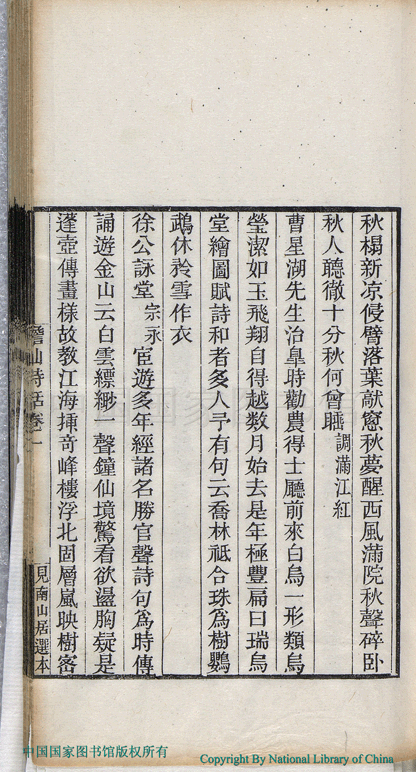 秋榻新凉侵臂落葉就窻秋夢醒西風滿院秋聲碎卧
秋人聽徹十分秋何曾睡調滿江紅
曹星湖先生治皐時勸農得士廳前來白烏一形類烏
瑩潔如玉飛翔自得越數月始去是年極豐扁曰瑞烏
堂繪圖賦詩和者多人予有句云喬林祗合珠爲樹鸚
鵡休矜雪作衣
徐公詠堂宗永宦遊多年經諸名勝官聲詩句爲時傳
誦遊金山云白雲縹緲一聲鐘仙境驚看欲盪胸疑是
蓬壺傳畫樣故教江海揷奇峰樓浮北固層嵐映樹密
山詩話卷一
見南山居選本
中国国家图书馆版权所有
Copyright By National Library of China